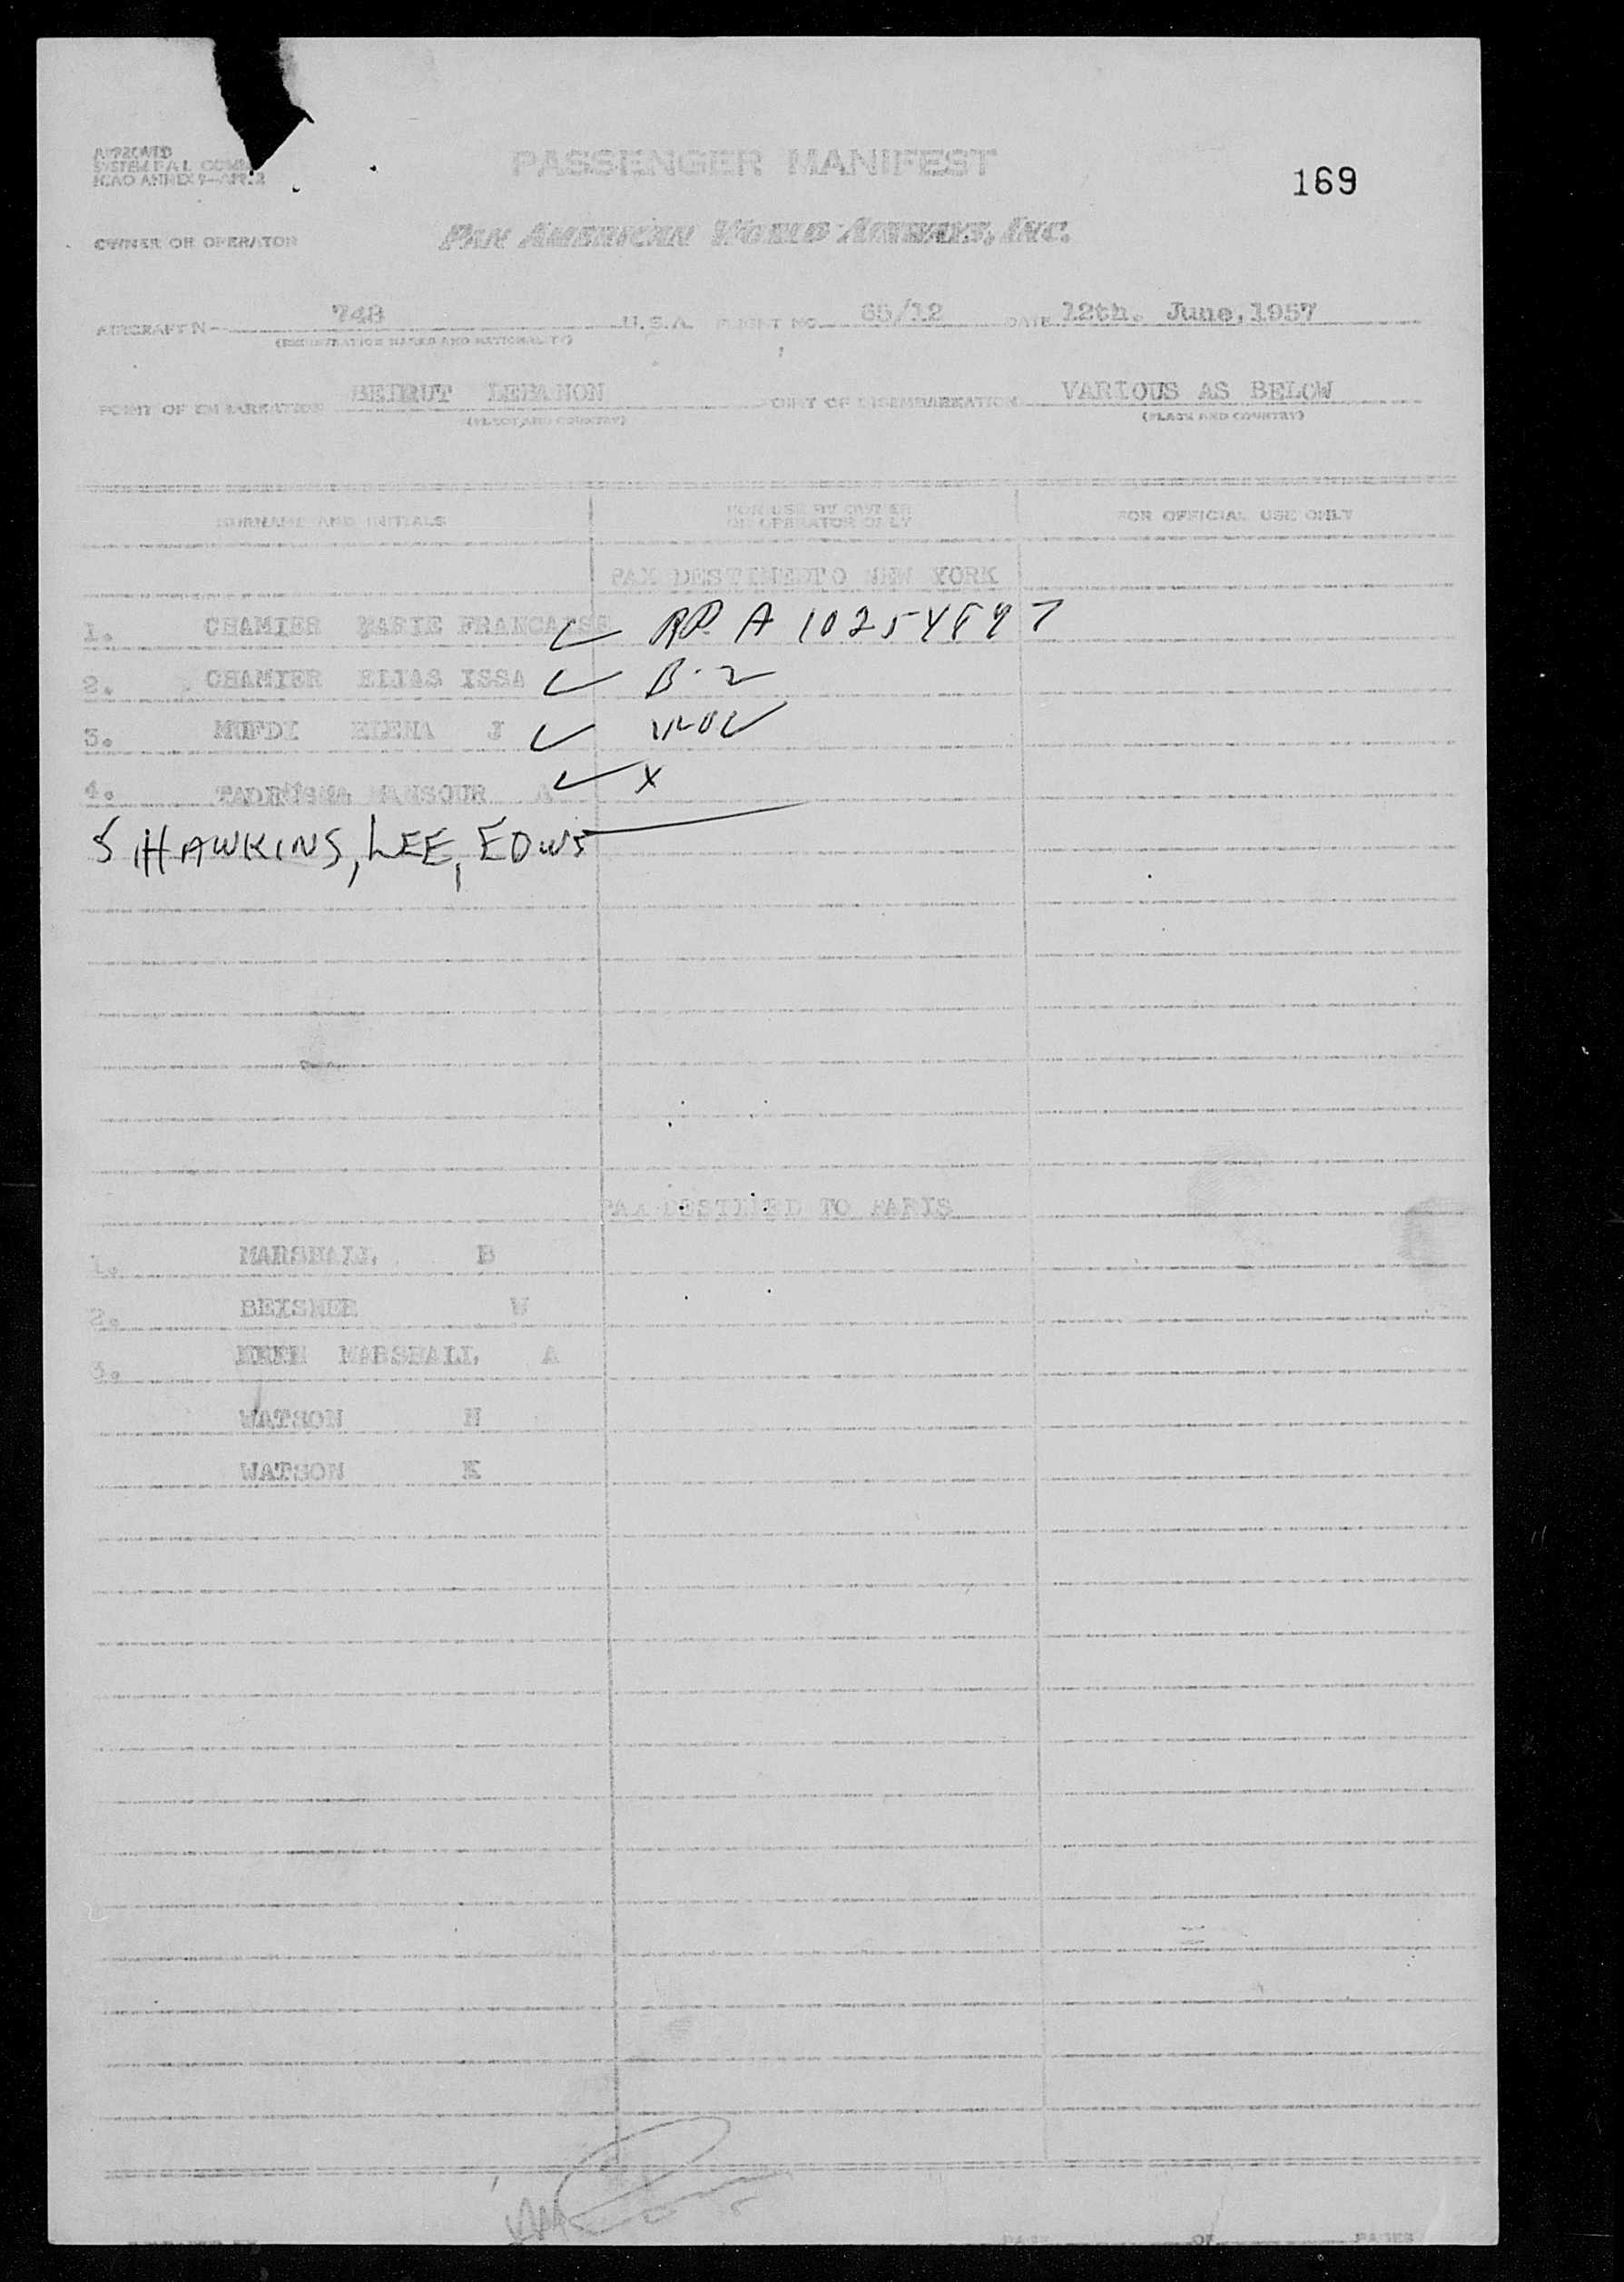 APPROVED
SYSTEM F.A.L. COMM
ICAO ANNEX 9—APP. 2
PASSENGER MANIFEST
169
OWNER OR OPERATOR PAN AMERICAN WORLD AIRWAYS, INC.
AIRCRAFT N- 748 U.S.A. FLIGHT NO. 65/12 DATE 12th. June, 1957
(REGISTRATION MARKS AND NATIONALITY)
POINT OF EMBARKATION BEIRUT LEBANON POINT OF DISEMBARKATION VARIOUS AS BELOW
(PLACE AND COUNTRY) (PLACE AND COUNTRY)
SURNAME AND INITIALS FOR USE BY OWNER OR OPERATOR ONLY FOR OFFICIAL USE ONLY
PAX DESTINEDTO NEW YORK
1. CHAMIER MARIE FRANCAISE A 10254897
2. CHAMIER ELIAS ISSA B-2
3. MUFDI ELENA J
4. MANSOUR A X
5 HAWKINS, LEE, EDWS
PAX DESTINED TO PARIS
1. MARSHALL B
2. BEISNER W
3. MARSHALL A
WATSON N
WATSON K
PAGE OF PAGES